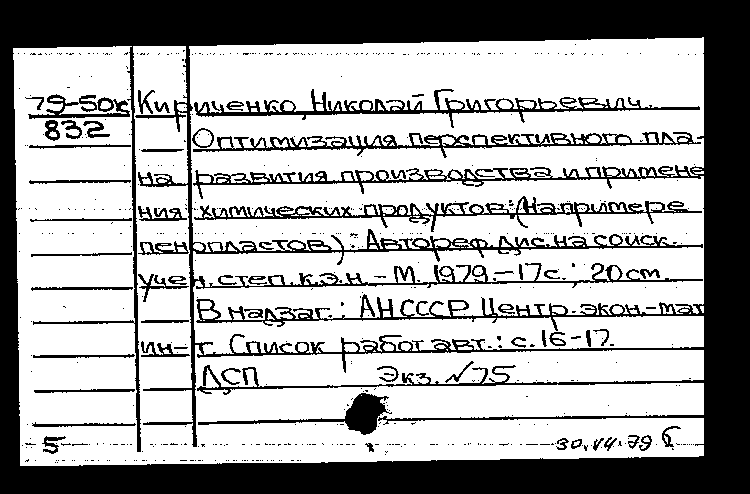 79-50к Кириченко, Николай Григорьевич.
832 Оптимизация перспективного пла-
на развития производства и примене
ния химических продуктов: (На примере
пенопластов): Автореф. дис. на соиск.
учен. степ. к.э.н. - М., 1979. - 17с.; 20 см.
В надзаг.: АН СССР, Центр. экон.-мат
ин-т. Список работ авт.: с. 16-17.
ДСП Экз. № 75
5